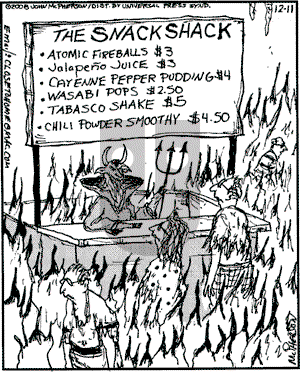 ©2008 JOHN MCPHERSON/DIST. BY UNIVERSAL PRESS SYND.
12-11
THE SNACK SHACK
• ATOMIC FIREBALLS $3
• Jalapeño JUICE $3
• CAYENNE PEPPER PUDDING $4
• WASABI POPS $2.50
• TABASCO SHAKE $5
• CHILI POWDER SMOOTHY $4.50
McPHERSON